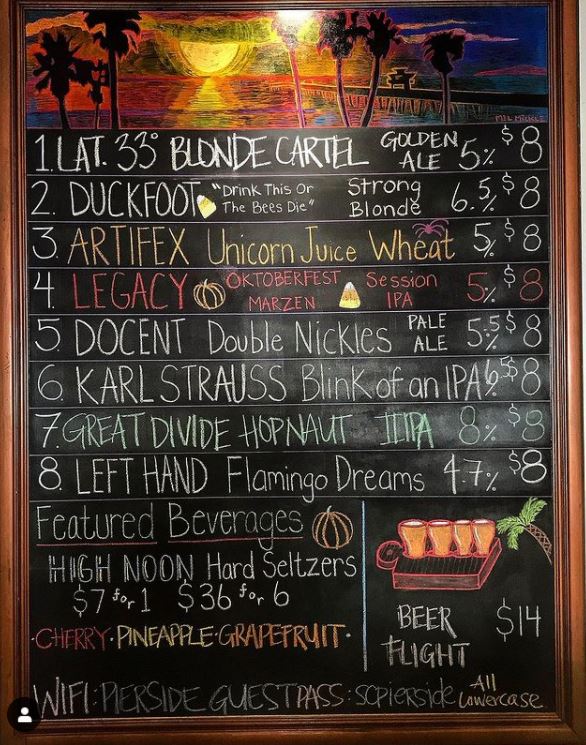 MEL MICKLE
1. LAT. 33° BLONDE CARTEL GOLDEN ALE 5% $8
2. DUCKFOOT "Drink This Or The Bees Die" Strong Blonde 6.5% $8
3. ARTIFEX Unicorn Juice Wheat 5% $8
4. LEGACY OKTOBERFEST MARZEN Session IPA 5% $8
5. DOCENT Double Nickles PALE ALE 5.5% $8
6. KARL STRAUSS Blink of an IPA $8
7. GREAT DIVIDE HOPNAUT IIPA 8% $8
8. LEFT HAND Flamingo Dreams 4.7% $8
Featured Beverages
HIGH NOON Hard Seltzers
$7 for 1 $36 for 6
·CHERRY·PINEAPPLE·GRAPEFRUIT·
BEER FLIGHT $14
WIFI: PIERSIDE GUEST PASS: scpierside All Lowercase